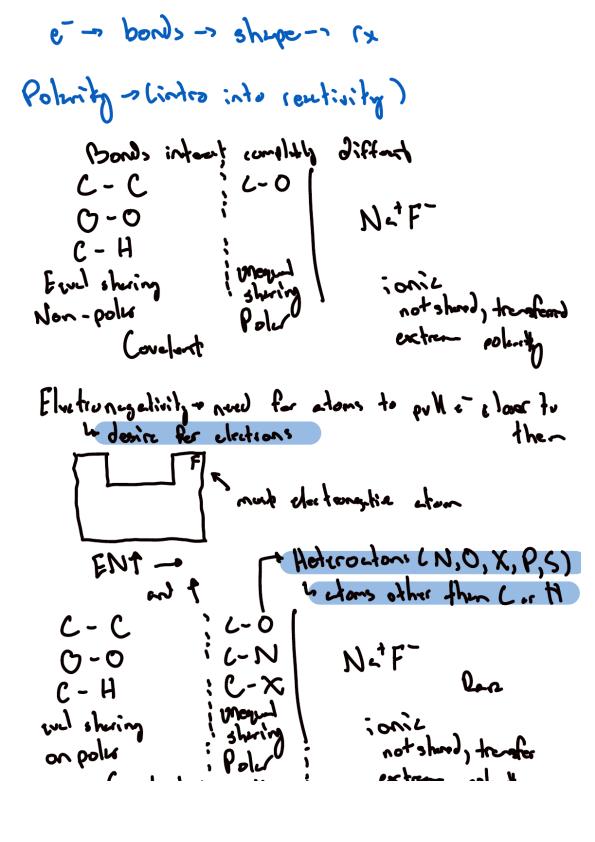 e⁻ → bonds → shape → rx
Polarity → (intro into reactivity)
Bonds interact completly different
C - C
C - O
O - O
Na⁺F⁻
C - H
Equal sharing
Non-polar
Covalent
unequal
sharing
Polar
ionic
not shared, transferred
extreme polarity
Electronegativity → need for atoms to pull e⁻ closer to
them
↳ desire for electrons
F
most electronegative atom
EN↑ →
and ↑
Heteroatoms (N, O, X, P, S)
↳ atoms other than C or H
C - C
C - O
O - O
C - N
Na⁺F⁻
C - H
C - X
Rare
qual sharing
on polar
unequal
sharing
Polar
ionic
not shared, transfer